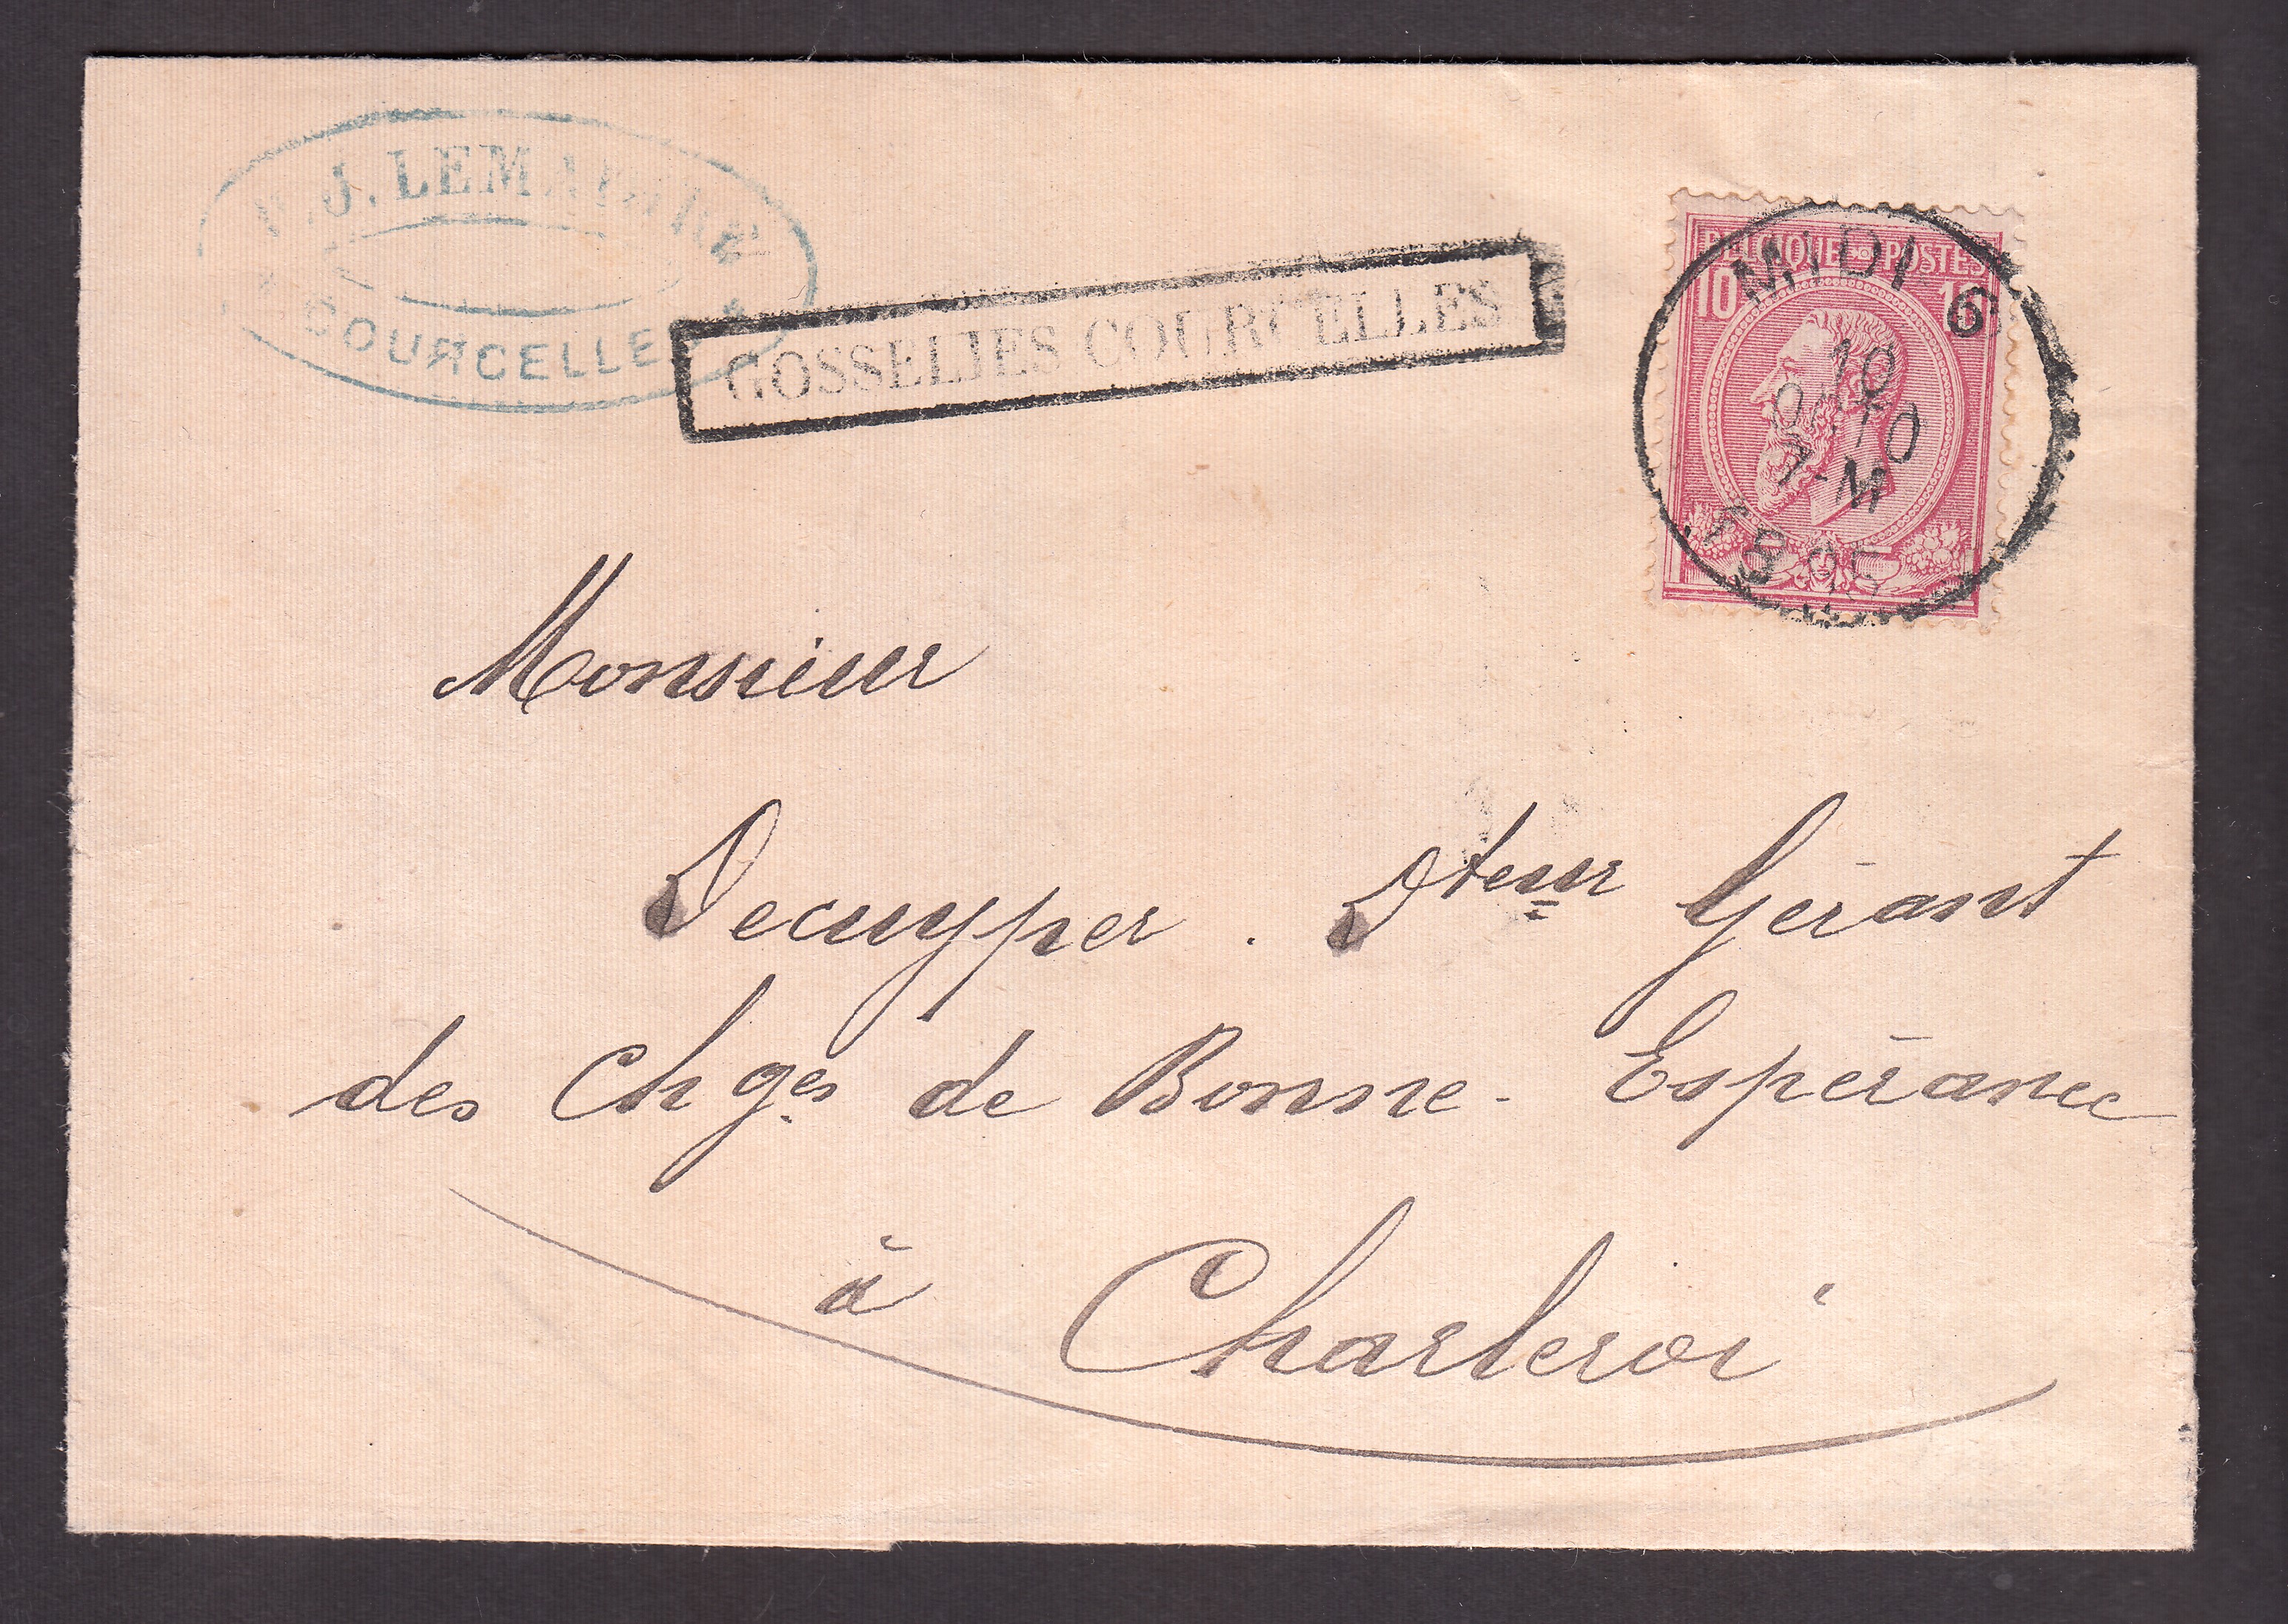 J. LEMAIGRE
COURCELLES
GOSSELIES COURCELLES
BELGIQUE POSTES
10 10
MIDI 6
10
OCTO
7-M
1885
Monsieur
Decuyper. Dteur Gérant
des Chges de Bonne-Espérance
à Charleroi